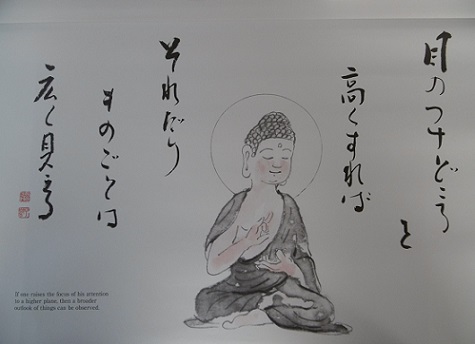 目のつけどころ
を
高くすれば
それだけ
ものごとは
広く見える
If one raises the focus of his attention
to a higher plane, then a broader
outlook of things can be observed.